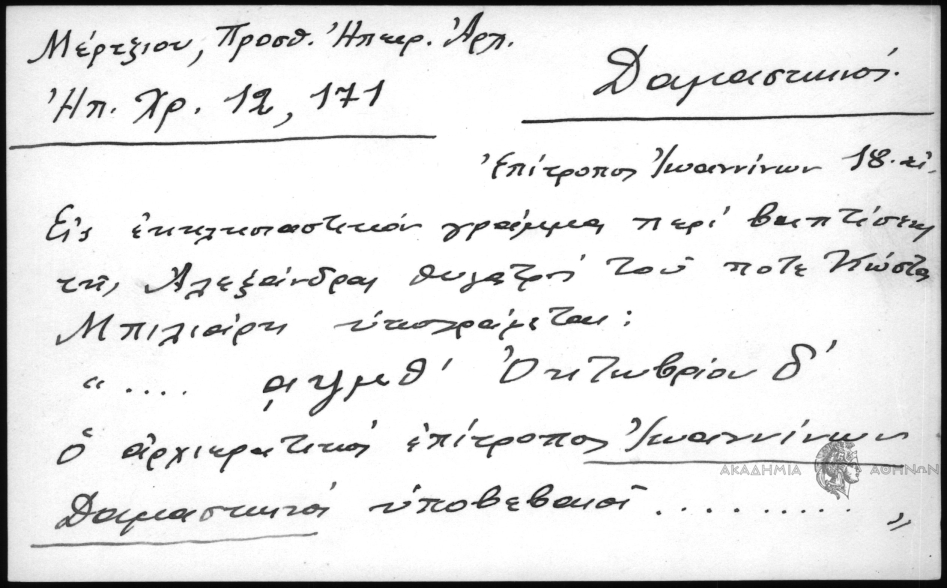 Μέρτζιου, Προσθ. Ἠπειρ. Ἀρπ.
Δαμασκηνός.
Ἠπ. Χρ. 12, 171
Ἐπίτροπος Ἰωαννίνων 18. αἰ.
Εἰς ἐκκλησιαστικόν γράμμα περί βαπτίσεως
τῆς Ἀλεξάνδρας θυγατρός τοῦ ποτε Κώστα
Μπιλιάρη ὑπογράφεται:
" .... αψμθ' Ὀκτωβρίου δ'
ὁ ἀρχιερατικός ἐπίτροπος Ἰωαννίνων
ΑΚΑΔΗΜΙΑ ΑΘΗΝΩΝ
Δαμασκηνός ὑποβεβαιοῖ .......... "